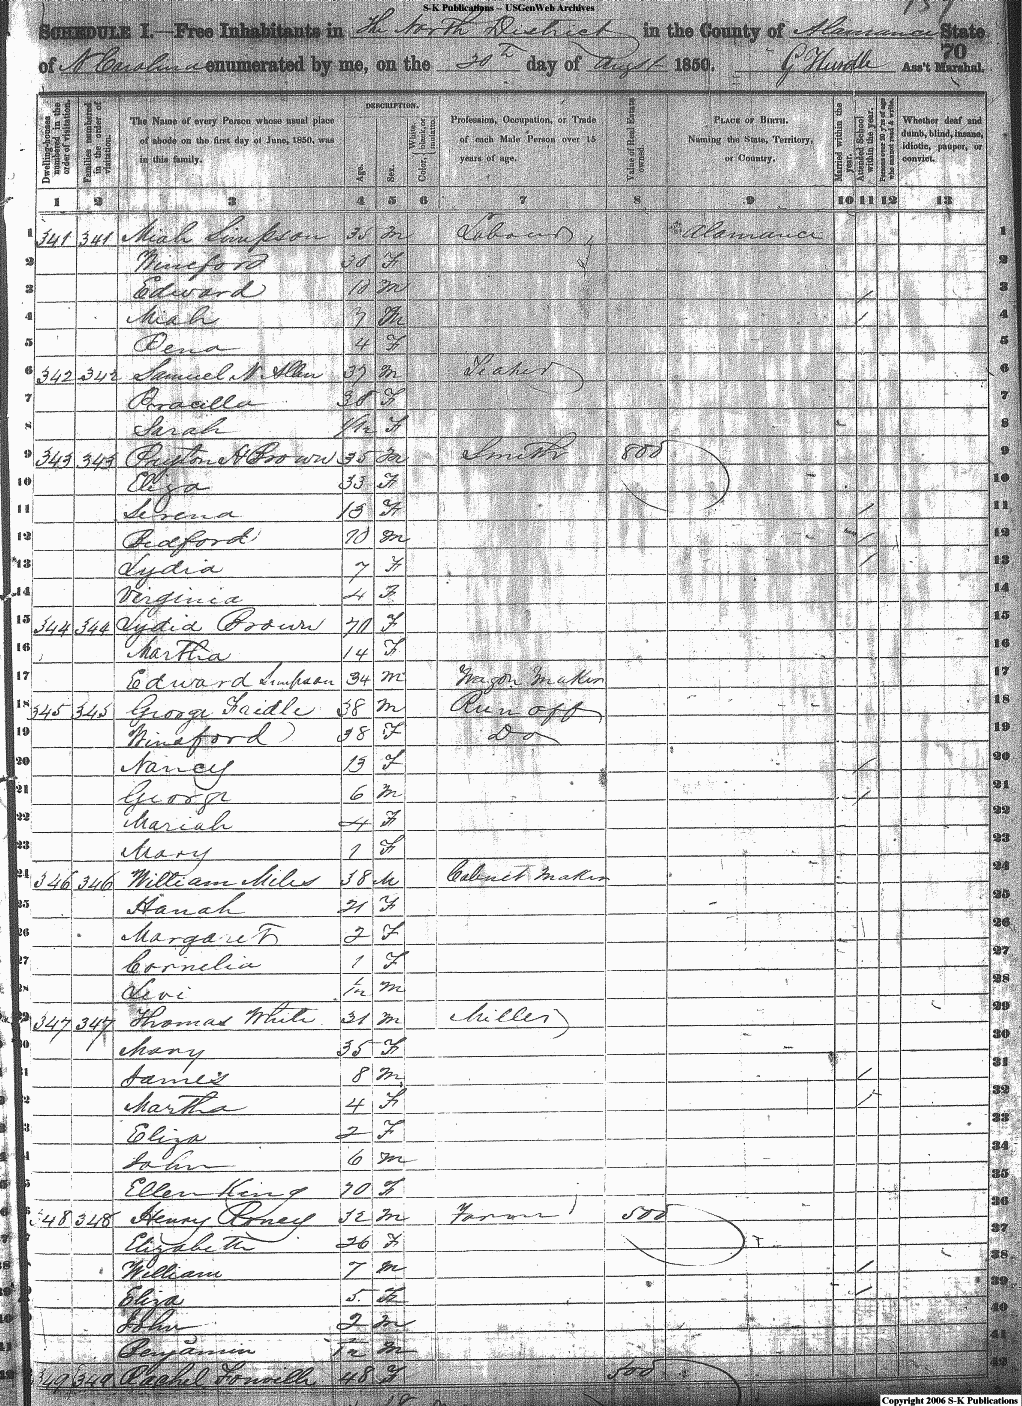 S-K Publications – USGenWeb Archives
SCHEDULE I.—Free Inhabitants in The North District in the County of Alamance State
of N Carolina enumerated by me, on the 30th day of Augst 1850. G Hurdle Ass't Marshal.
70
Dwelling-houses numbered in the order of visitation.
Families numbered in the order of visitation.
The Name of every Person whose usual place of abode on the first day of June, 1850, was in this family.
DESCRIPTION.
Age.
Sex.
Color, White, black, or mulatto.
Profession, Occupation, or Trade of each Male Person over 15 years of age.
Value of Real Estate owned.
PLACE OF BIRTH. Naming the State, Territory, or Country.
Married within the year.
Attended School within the year.
Persons over 20 y'rs of age who cannot read & write.
Whether deaf and dumb, blind, insane, idiotic, pauper, or convict.
1 2 3 4 5 6 7 8 9 10 11 12 13
1 341 341 Miah Simpson 35 M Alamance 1
2 Wineford 30 F 2
3 Edward 10 M / 3
4 Miah 7 M / 4
5 4 F 5
6 342 342 Samuel N Allen 37 M 6
7 38 F 7
Sarah F 8
9 343 343 H Brown 35 M Smith 800 9
10 Eliza 33 F 10
11 Serena 13 F / 11
12 Bedford 10 M / 12
13 Lydia 7 F / 13
14 Virginia 4 F 14
15 344 344 Lydia Brown 70 F 15
16 Martha 14 F 16
17 Edward Simpson 34 M Wagon Maker 17
18 345 345 George Faidle 38 M Run off 18
19 Wineford 38 F Do 19
20 Nancy 13 F / 20
21 George 6 M / 21
22 Mariah 4 F 22
23 Mary 1 F 23
24 346 346 William Miles 38 M Cabinet Maker 24
25 Hanah 21 F 25
26 Margaret 2 F 26
27 Cornelia 1 F 27
28 Levi M 28
347 347 Thomas White 31 M Miller 29
30 Mary 35 F 30
James 8 M / 31
Martha 4 F / 32
Eliza 2 F 33
John 6 M 34
Ellen King 70 F 35
348 348 Henry Roney 32 M 500 36
Elizabeth 26 F 37
William 7 M / 38
Eliza 5 F / 39
John 2 M 40
Benjamin M 41
349 349 Rachel Fonville 48 F 500 42
Copyright 2006 S-K Publications